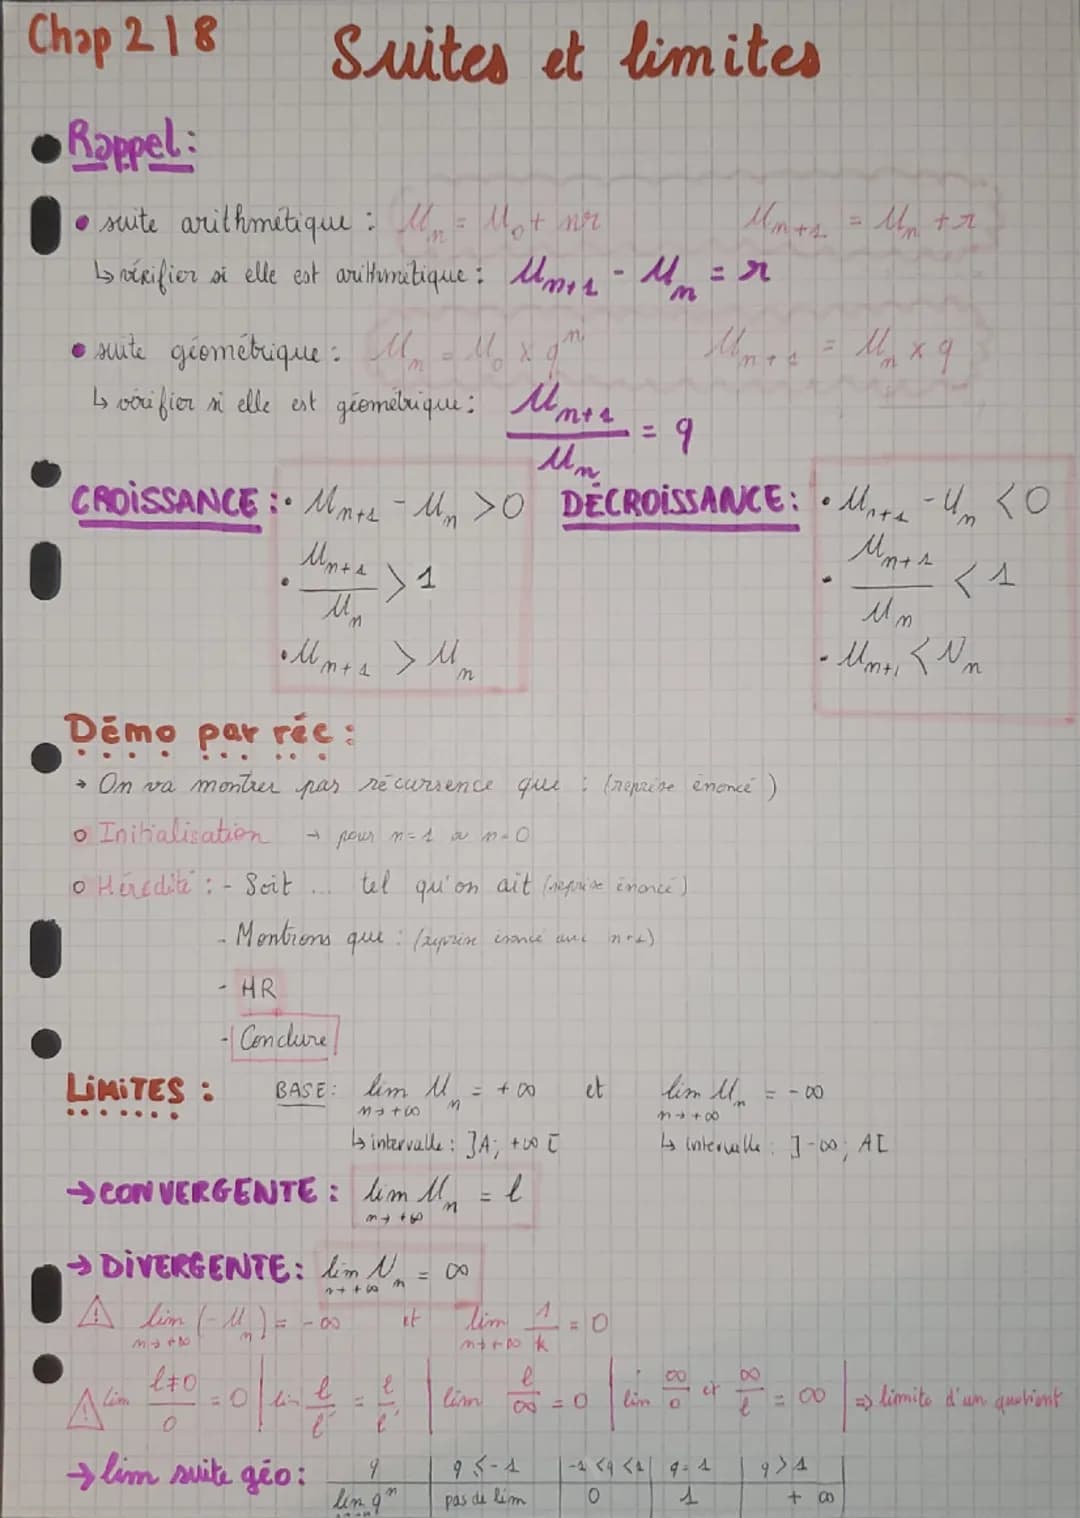 Chap 2 | 8
Suites et limites
Rappel :
suite arithmétique : Un = U0 + nr Un+1 = Un + r
↳ vérifier si elle est arithmétique : Un+1 - Un = r
suite géométrique : Un = U0 x q^n Un+1 = Un x q
↳ vérifier si elle est géométrique : Un+1 / Un = q
CROISSANCE : • Un+1 - Un > 0 DÉCROISSANCE : • Un+1 - Un < 0
• Un+1 / Un > 1 • Un+1 / Un < 1
• Un+1 > Un - Un+1 < Nn
Démo par réc :
→ On va montrer par récursence que : (reprise énoncé)
o Initialisation → pour n=1 ou n=0
o Hérédité : - Soit ... tel qu'on ait (reprise énoncé)
- Montrons que : (reprise énoncé avec n+1)
- HR
- Conclure
LIMITES : BASE : lim Un = +∞ et lim Un = -∞
n→+∞ n→+∞
↳ intervalle : ]A; +∞[ ↳ intervalle : ]-∞; A[
→ CONVERGENTE : lim Un = l
n→+∞
→ DIVERGENTE : lim Nn = ∞
n→+∞
⚠ lim (-Un) = -∞ et lim 1/k = 0
n→+∞ n→+∞
⚠ lim l≠0 / 0 = 0 | lim l / l' = l / l' | lim l / ∞ = 0 | lim ∞ / 0 et ∞ / l = ∞ | => limite d'un quotient
→ lim suite géo : q | q ≤ -1 | -1 < q < 1 | q = 1 | q > 1
lim q^n | pas de lim | 0 | 1 | + ∞